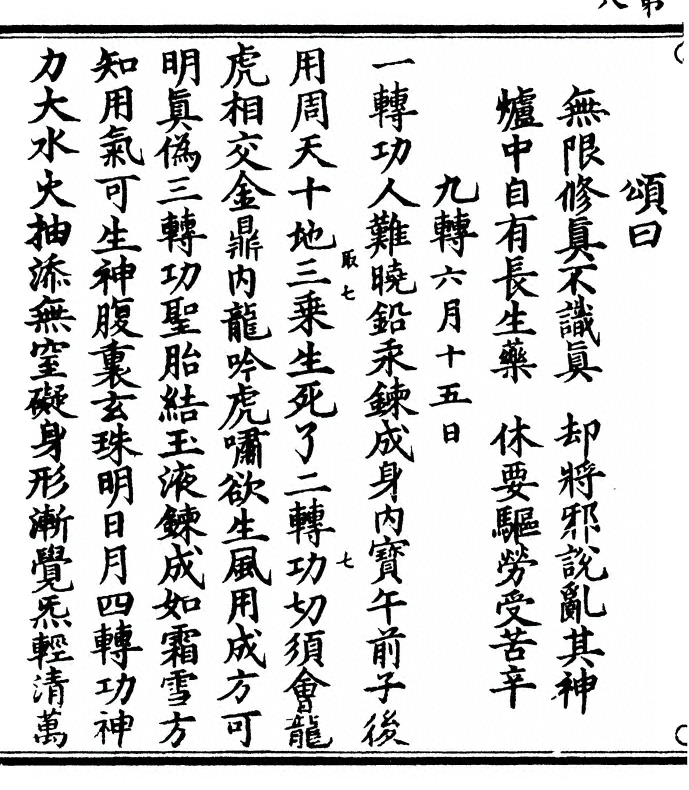 頌曰
無限修眞不識眞　却將邪說亂其神
爐中自有長生藥　休要驅勞受苦辛
九轉六月十五日
一轉功人難曉鉛汞鍊成身內寶午前子後
用周天十地三乘生死了二轉功切須會龍
虎相交金鼎內龍吟虎嘯欲生風用成方可
明眞僞三轉功聖胎結玉液鍊成如霜雪方
知用氣可生神腹裏玄珠明日月四轉功神
力大水火抽添無窒礙身形漸覺炁輕清萬